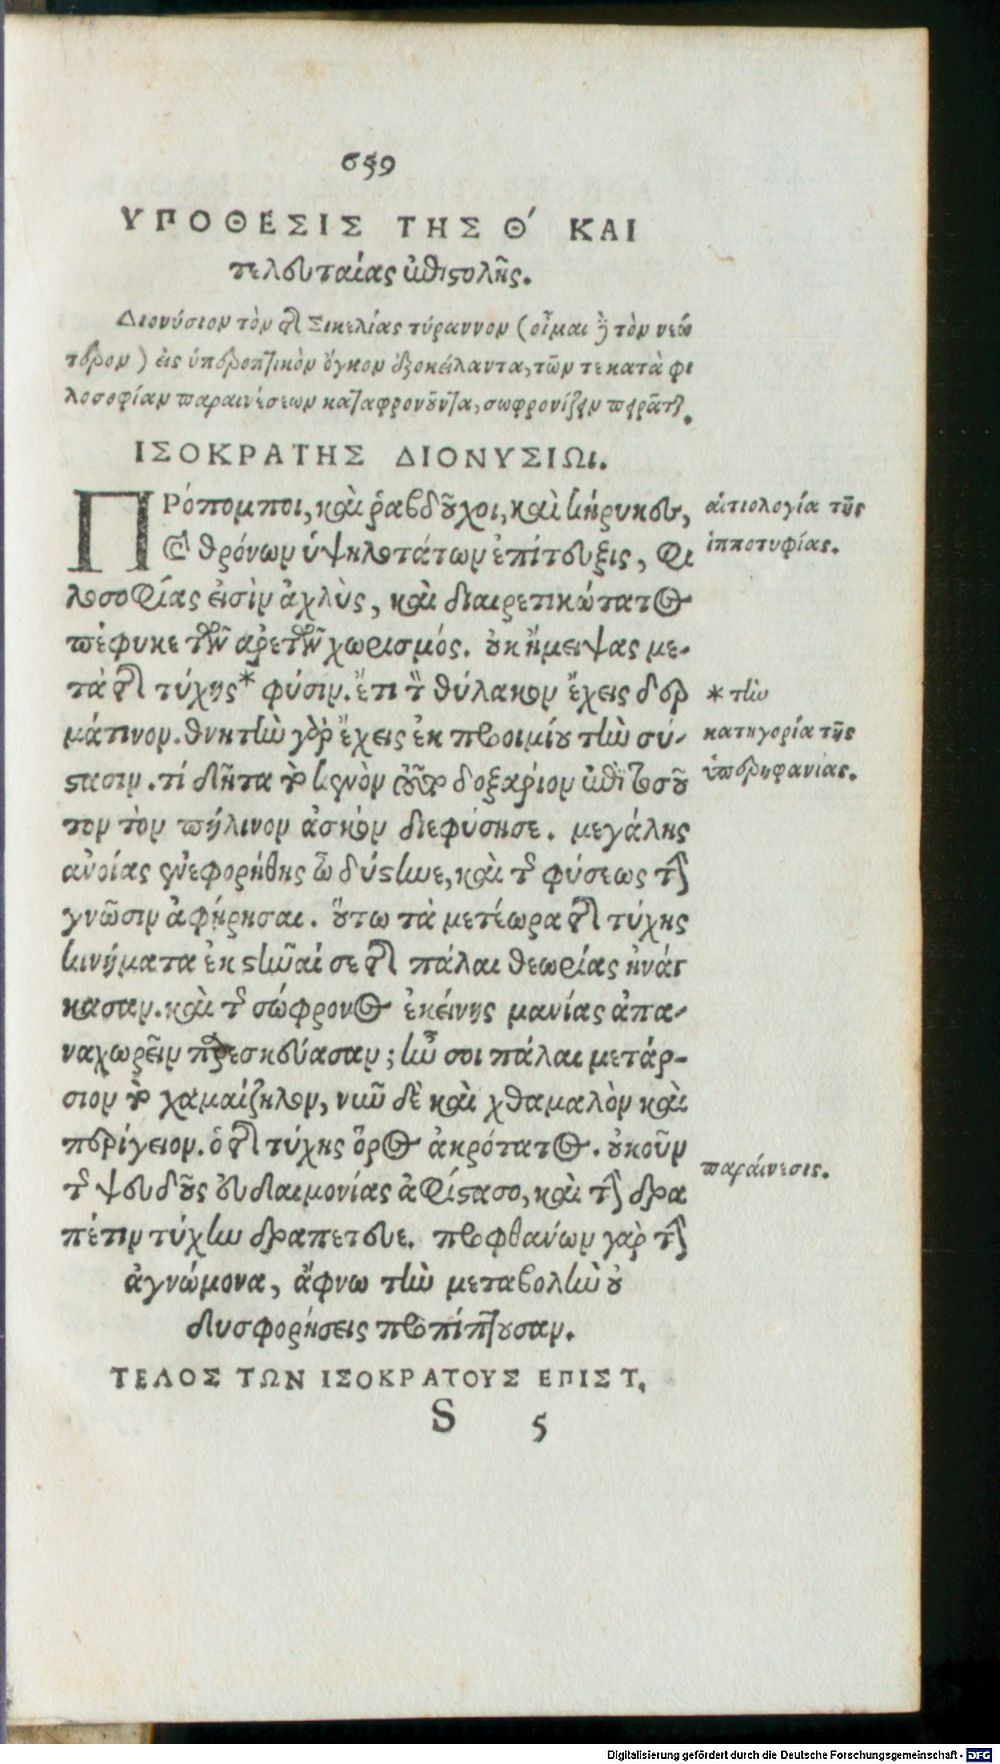 659
ΥΠΟΘΕΣΙΣ ΤΗΣ Θ΄ ΚΑΙ
τελευταίας ἐπιστολῆς.
Διονύσιον τὸν τῆς Σικελίας τύραννον (οἶμαι δὲ τὸν νεώ
τερον) εἰς ὑπεροπτικὸν ὄγκον ἐξοκείλαντα, τῶν τε κατὰ φι
λοσοφίαν παραινέσεων καταφρονοῦντα, σωφρονίζειν πειρᾶται.
ΙΣΟΚΡΑΤΗΣ ΔΙΟΝΥΣΙΩι.
ΠΡόπομποι, καὶ ῥαβδοῦχοι, καὶ κήρυκες,
καὶ θρόνων ὑψηλοτάτων ἐπίτευξις, φι
λοσοφίας εἰσὶν ἀχλὺς, καὶ διαιρετικώτατος
πέφυκε τῶν ἀρετῶν χωρισμός. οὐκ ἤμειψας με-
τὰ τῆς τύχης* φύσιν. ἔτι τὸ θύλακον ἔχεις δερ
μάτινον. θνητὴν γὰρ ἔχεις ἐκ προιμίου τὴν σύ-
στασιν. τί δῆτα τὸ κενὸν δοξάριον ἐπὶ τοσοῦ
τον τὸν πήλινον ἀσκὸν διεφύσησε. μεγάλης
ἀνοίας ἐνεφορήθης ὦ δύστηνε, καὶ τῆς φύσεως τὴν
γνῶσιν ἀφῄρησαι. οὕτω τὰ μετέωρα τῆς τύχης
κινήματα ἐκστῆναί σε τῆς πάλαι θεωρίας ἠνάγ
κασαν. καὶ τῆς σώφρονος ἐκείνης μανίας ἀπα-
ναχωρεῖν παρεσκεύασαν; ἦν σοι πάλαι μετάρ-
σιον τὸ χαμαίζηλον, νῦν δὲ καὶ χθαμαλὸν καὶ
περίγειον. ὁ τῆς τύχης ὅρος ἀκρότατος. οὐκοῦν
τῆς ψευδοῦς εὐδαιμονίας ἀφίστασο, καὶ τὴν δρα
πέτιν τύχην δραπέτευε. προφθάνων γὰρ τὴν
ἀγνώμονα, ἄφνω τὴν μεταβολὴν οὐ
δυσφορήσεις προπίπτουσαν.
ΤΕΛΟΣ ΤΩΝ ΙΣΟΚΡΑΤΟΥΣ ΕΠΙΣΤ.
S 5
αἰτιολογία τῆς
ἱπποτυφίας.
* τὴν
κατηγορία τῆς
ὑπερηφανίας.
παραίνεσις.
Digitalisierung gefördert durch die Deutsche Forschungsgemeinschaft - DFG